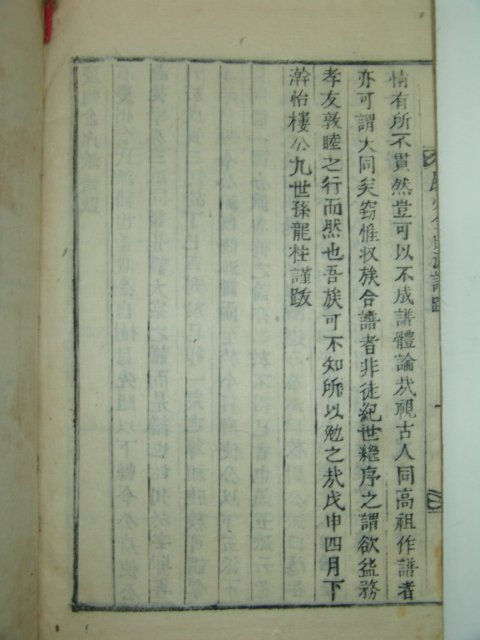 情有所不貫然豈可以不成譜體論㢤覩古人同高祖作譜者
亦可謂大同矣窃惟収族合譜者非徒紀世繼序之謂欲益務
孝友敦睦之行而然也吾族可不知所以勉之㢤戊申四月下
澣怡樓公九世孫龍柱謹跋